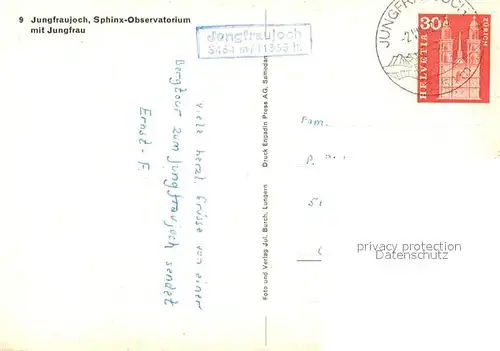 9 Jungfraujoch, Sphinx-Observatorium
mit Jungfrau
Jungfraujoch
3454 m / 11333 ft.
JUNGFRAUJOCH
30
HELVETIA
ZÜRICH
Viele herzl. Grüsse von einer
Bergtour zum Jungfraujoch sendet
Ernst - F.
Foto und Verlag Jul. Burch, Lungern
Druck Engadin Press AG, Samedan
Fam.
P.
privacy protection
watermark